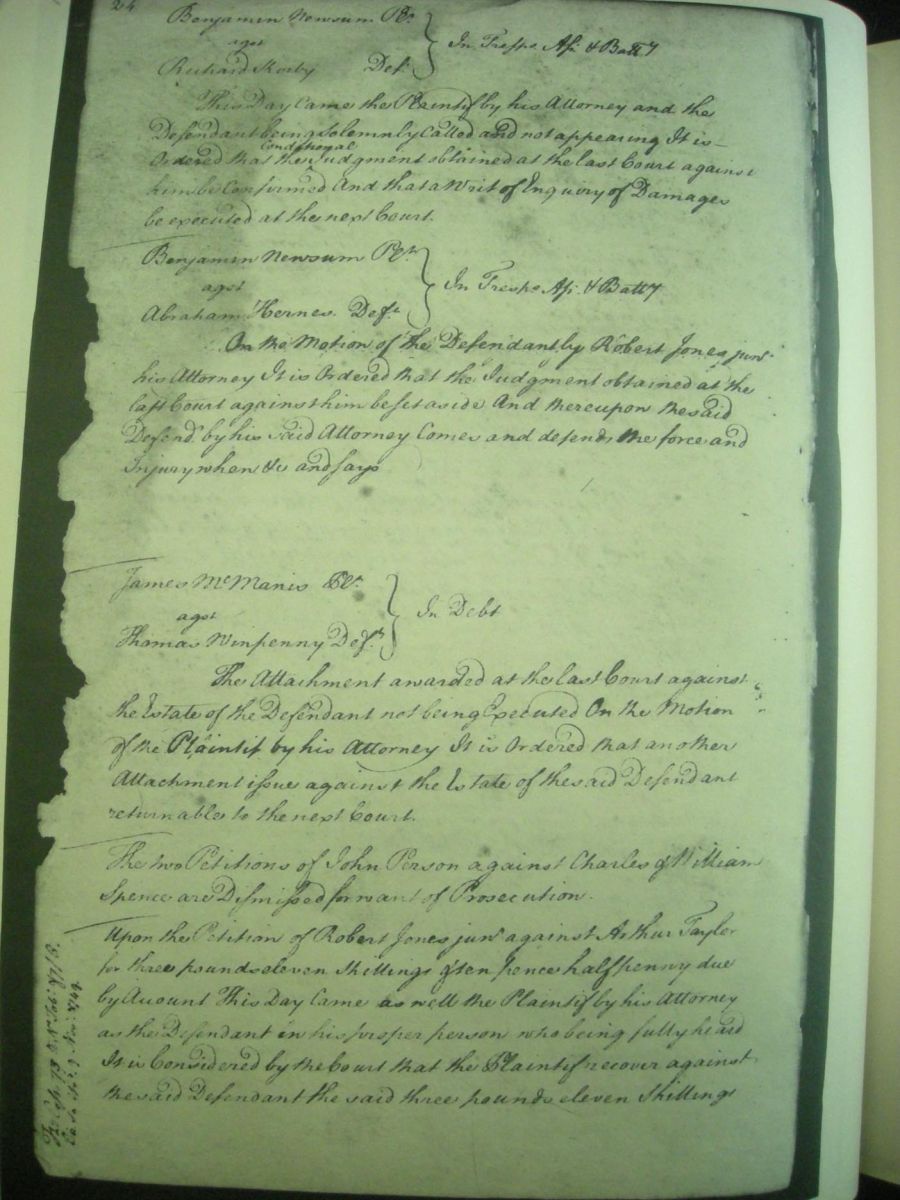 24
Benjamin Newsum Plt.
agst
Richard Def.t
} In Tresps. Ass. & Batt.y
This Day Came the Plaintif by his Attorney and the
Defendant being Solemnly Called and not appearing It is
Conditional
Ordered that the Judgment obtained at the last Court against
him be Confirmed And that a Writ of Enquiry of Damages
be executed at the next Court.
Benjamin Newsum Plt.
agst
Abraham Hernes Deft.
} In Tresps. Ass. & Batt.y
On the Motion of the Defendant by Robert Jones junr.
his Attorney It is Ordered that the Judgment obtained at the
last Court against him be set aside And thereupon the said
Defend.t by his said Attorney Comes and defends the force and
Injury when &c and says
James McManis Plt.
agst
Thomas Winpenny Deft.
} In Debt
The Attachment awarded at the last Court against
the Estate of the Defendant not being Executed On the Motion
of the Plaintif by his Attorney It is Ordered that another
Attachment issue against the Estate of the said Defendant
returnable to the next Court.
The two Petitions of John Person against Charles & William
Spence are Dismissed for want of Prosecution.
Upon the Petition of Robert Jones junr. against Arthur Tayler
for three pounds eleven Shillings & ten pence half penny due
by Account This Day Came as well the Plaintif by his Attorney
as the Defendant in his proper person who being fully heard
It is Considered by the Court that the Plaintif recover against
the said Defendant the said three pounds eleven Shillings